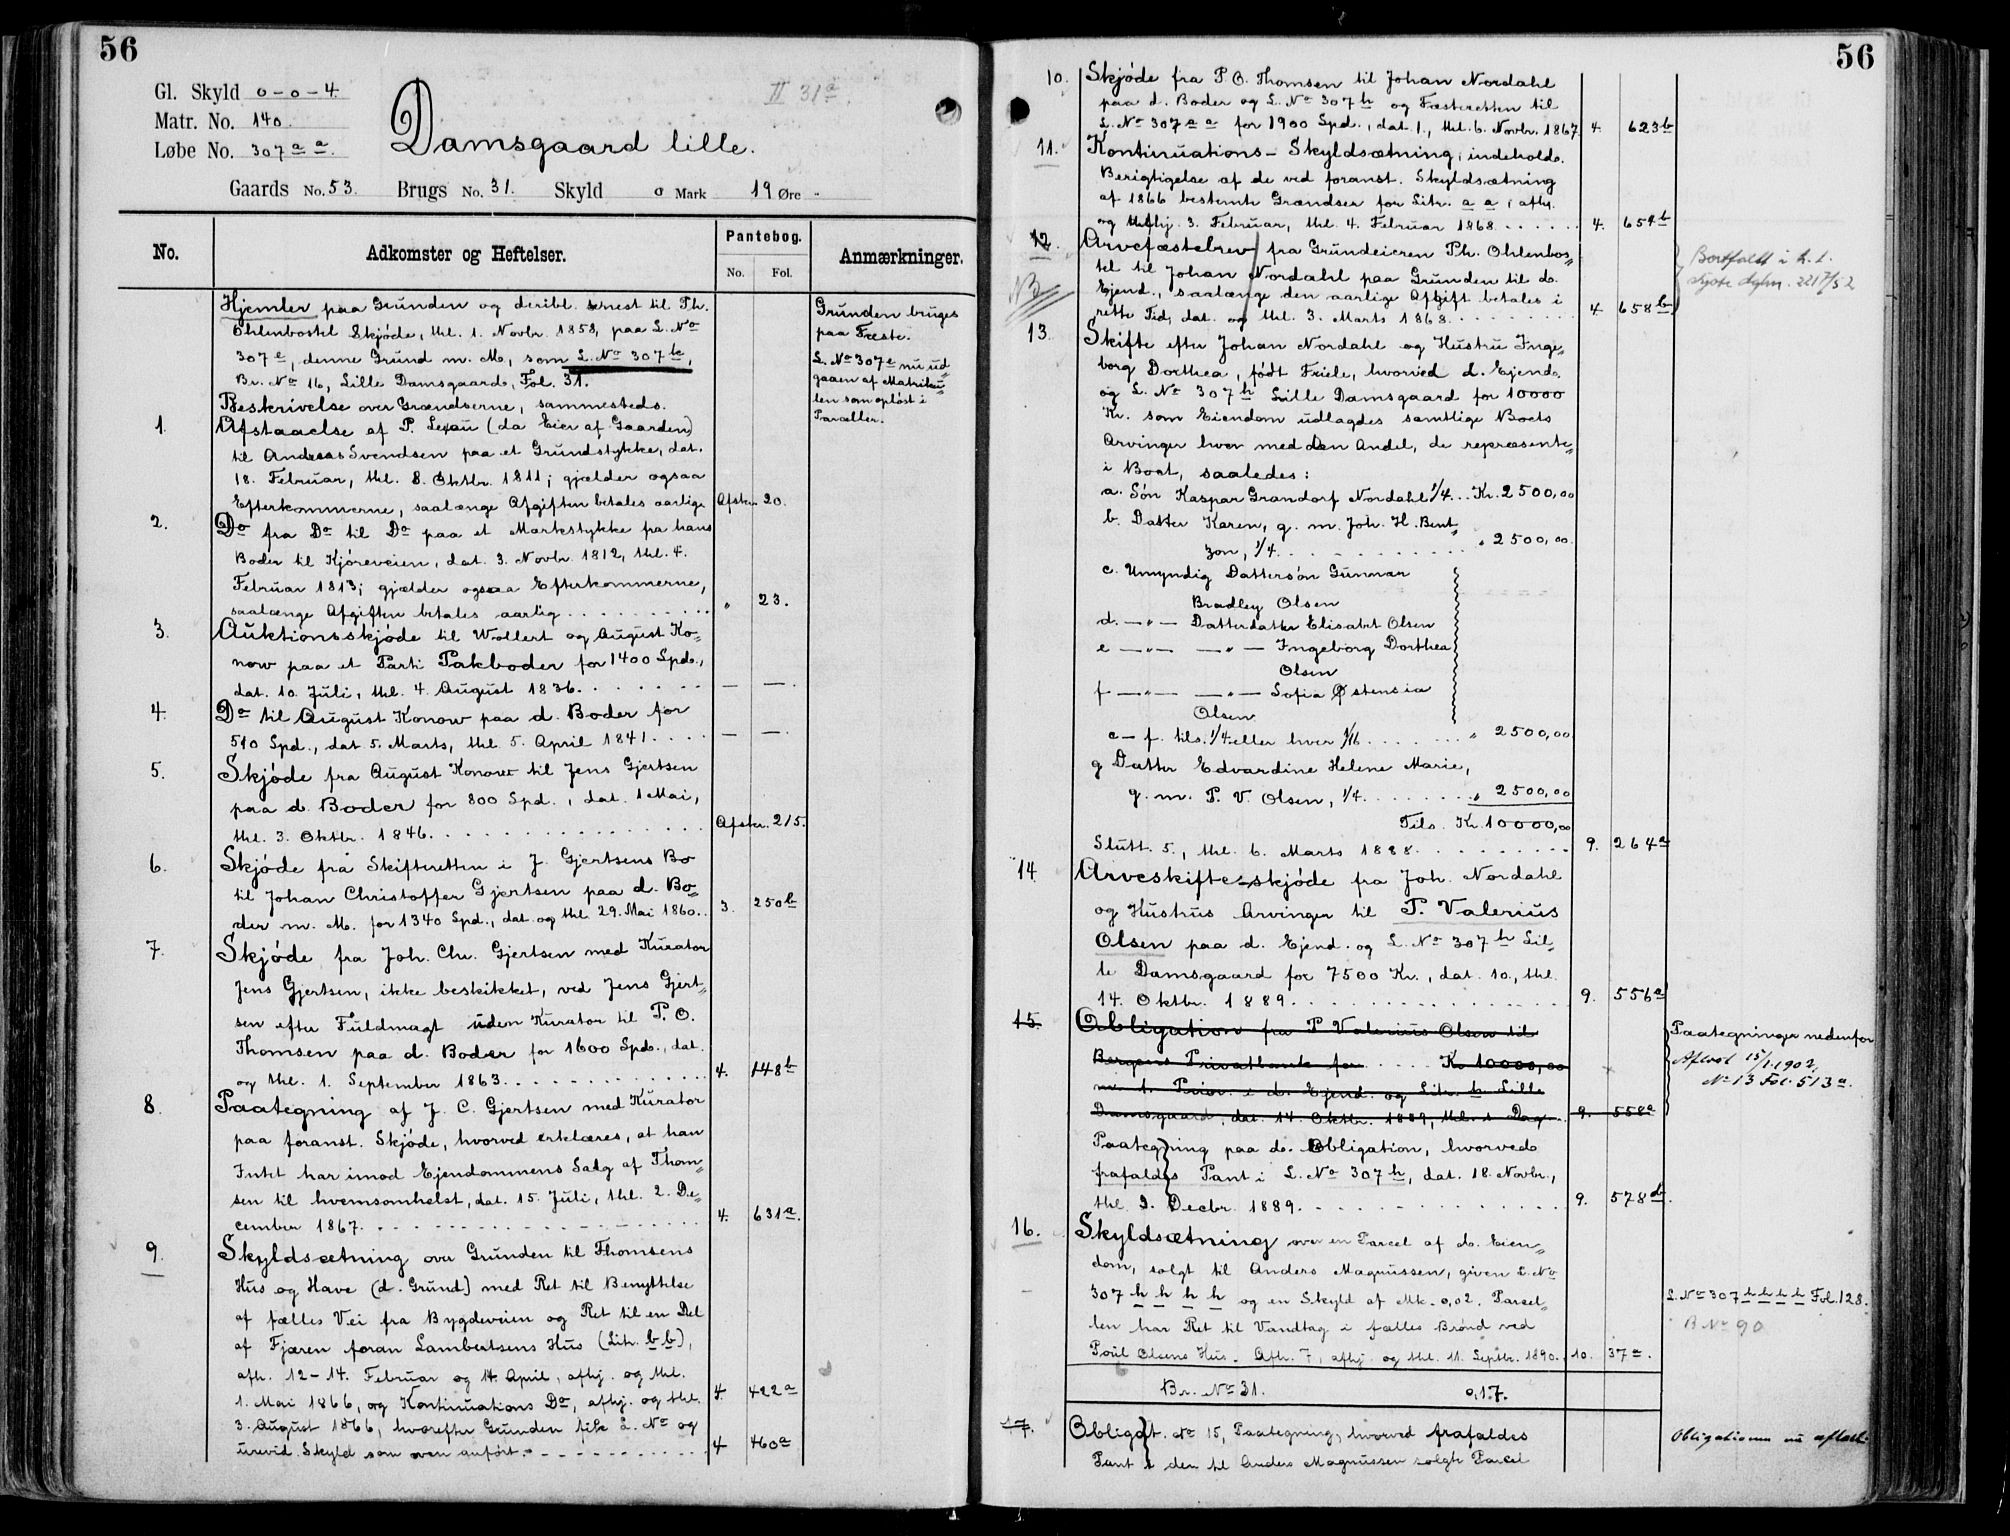 56
Gl. Skyld 0-0-4.
II 31a.
Matr. No. 140.
Løbe No. 307 a a.
Damsgaard lille.
Gaards No. 53. Brugs No. 31. Skyld 0 Mark 19 Øre -
No. Adkomster og Heftelser. Pantebog. Anmærkninger.
No. Fol.
Hjemler paa Grunden og deribl. senest til Ph.
Ohlenbostel Skjøde, thl. 1. Novbr. 1858, paa L. No
307 e, denne Grund m. M., som L. No 307 h,
Br. No 16, Lille Damsgaard, Fol. 31.
Beskrivelse over Grændserne, sammesteds.
Grunden bruges
paa Fæste.
L. No 307 e nu ud„
gaaen af Matriku„
len som opløst i
Parceller.
1. Afstaaelse af P. Lexau (da Eier af Gaarden)
til Andreas Svendsen paa et Grundstykke, dat.
18. Februar, thl. 8. Oktbr. 1811; gjælder ogsaa
Efterkommerne, saalænge Afgiften betales aarlig. Afskr. 20.
2. Do fra Do til Do paa et Markstykke fra hans
Boder til Kjøreveien, dat. 3. Novbr 1812, thl. 4.
Februar 1813; gjælder ogsaa Efterkommerne,
saalænge Afgiften betales aarlig . . . . . . . . . „ 23.
3. Auktionsskjøde til Wollert og August Ko„
now paa et Parti Pakboder for 1400 Spd.,
dat. 10. Juli, thl. 4. August 1836. . . . . . . . — —.
4. Do til August Konow paa d. Boder for
510 Spd., dat. 5. Marts, thl. 5. April 1841. . . . — —.
5. Skjøde fra August Konow til Jens Gjertsen
paa d. Boder for 800 Spd., dat. 1 Mai,
thl. 3. Oktbr. 1846. . . . . . . . . . . . . . . . Afskr. 215.
6. Skjøde fra Skifteretten i J. Gjertsens Bo
til Johan Christoffer Gjertsen paa d. Bo„
der m. M. for 1340 Spd., dat. og thl 29. Mai 1860. . 3. 250 b
7. Skjøde fra Joh. Chr. Gjertsen med Kurator
Jens Gjertsen, ikke beskikket, ved Jens Gjert„
sen efter Fuldmagt uden Kurator til P. O.
Thomsen paa d. Boder for 1600 Spd., dat.
og thl. 1. September 1863. . . . . . . . . . . . 4. 148 b
8. Paategning af J. C. Gjertsen med Kurator
paa foranst. Skjøde, hvorved erklæres, at han
Intet har imod Ejendommens Salg af Thom„
sen til hvemsomhelst, dat. 15. Juli, thl. 2. De„
cember 1867. . . . . . . . . . . . . . . . . . . 4. 631 a.
9. Skyldsætning over Grunden til Thomsens
Hus og Have (d. Grund) med Ret til Benyttelse
af fælles Vei fra Bygdeveien og Ret til en Del
af Fjæren foran Lambertsens Hus (Litr. b b),
afh. 12-14. Februar og 14 April, afhj. og thl.
1. Mai 1866, og Kontinuations Do, afhj. og thl. 4. 422 a
3. August 1866, hvorefter Grunden fik L. No og
urevid. Skyld som oven anført. . . . . . . . . . 4 460 a
56
10. Skjøde fra P O. Thomsen til Johan Nordahl
paa d. Boder og L. No 307 h og Fæsteretten til
L. No 307 a a for 1900 Spd., dat. 1., thl. 6. Novbr. 1867. 4. 623 b
11. Kontinuations- Skyldsætning, indeholdd.
Berigtigelse af de ved foranst. Skyldsætning
af 1866 bestemte Grændser for Litr. a a, afh.
og afhj. 3. Februar, thl. 4. Februar 1868. . . . . . 4. 651 b
12. Arvefæstebrev fra Grundeieren Ph. Ohlenbos„
tel til Johan Nordahl paa Grunden til d.
Ejend., saalænge den aarlige Afgift betales i
rette Tid, dat. og thl. 3. Marts 1868. . . . . . . . 4. 658 b
NB
Bortfalt i h. t.
13. Skifte efter Johan Nordahl og Hustru Inge„
borg Dorthea, født Friele, hvorved d. Ejend.
og L. No 307 h Lille Damsgaard for 10000
Kr. som Eiendom udlagdes samtlige Boets
Arvinger hver med den Andel, de repræsente„
i Boet, saaledes:
a. Søn Kaspar Grandorf Nordahl 1/4. . . Kr. 2500,00
b. Datter Karen, g. m. Joh. H. Bent„
zon, 1/4. . . . . . . . . . . . . . „ 2500,00.
c. Umyndig Dattersøn Gunnar
Bradley Olsen
d. —„— Datterdatter Elisabet Olsen
e —„— —„— Ingeborg Dorthea
Olsen
f —„— —„— Sofia Østensia
Olsen
c-f. tils. 1/4 eller hver 1/16 . . . . . . „ 2500,00
g Datter Edvardine Helene Marie,
g. m. P. V. Olsen, 1/4. . . . . . . . „ 2500,00
Tils. Kr. 10000,00
Slutt. 5., thl. 6. Marts 1888. . . . . . . . . . 9. 264 a
14 Arveskifte-skjøde fra Joh. Nordahl
og Hustrus Arvinger til P. Valerius
Olsen paa d. Ejend. og L. No 307 h Lil„
le Damsgaard for 7500 Kr., dat. 10., thl.
14. Oktbr. 1889. . . . . . . . . . . . . . . . . 9. 556 a
15. Obligation fra P Valerius Olsen til
Bergens Privatbank for . . . . Kr 10000,00
m. 1. Prior. i d. Ejend. og Litr. h Lille
Damsgaard, dat. 14. Oktbr. 1889, thl. s. Dag. 9. 558 a
Paategninger nedenfor
Aflest 15/1 1902,
No 13 Fol. 513 a.
Paategning paa d. Obligation, hvorved
frafaldes Pant i L. No 307 h, dat. 18. Novbr.,
thl. 2. Decbr. 1889. . . . . . . . . . . . . . . . 9. 578 b.
16. Skyldsætning over en Parcel af d. Eien„
dom, solgt til Anders Magnussen, given L. No
307 h h h h og en Skyld af Mk. 0,02. Parcel„
len har Ret til Vandtag i fælles Brønd ved
Poul Olsens Hus. Afh. 7, afhj. og thl. 11. Septbr. 1890. . 10. 37 a.
L. No 307 h h h h Fol. 128.
B No 90
Br. No 31. 0,17.
17. Obligat. No 15, Paategning, hvorved frafaldes
Pant i den til Anders Magnussen solgte Parcel
Obligationen nu aflest